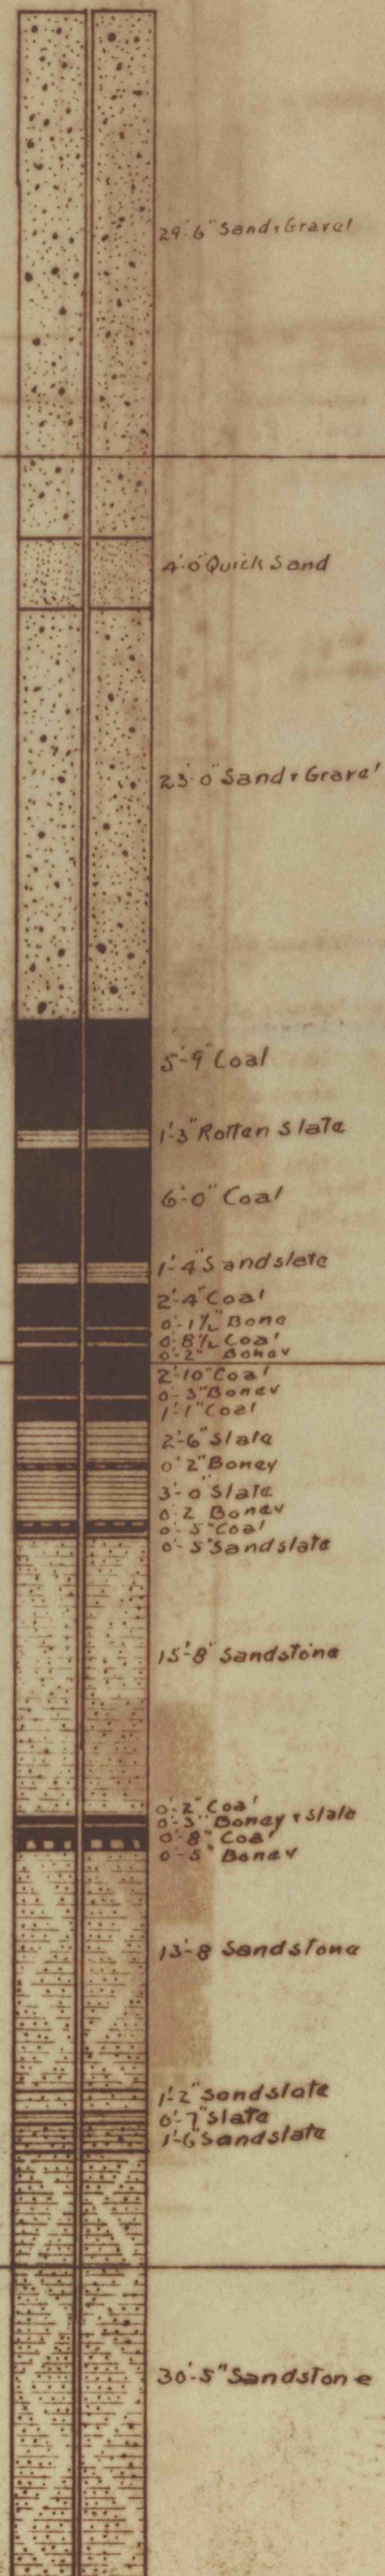 29'6" Sand & Gravel
4'-0" Quick Sand
23'-0" Sand & Gravel
5'-9" Coal
1'-3" Rotten Slate
6'-0" Coal
1'-4" Sandslate
2'-4" Coal
0'-1½" Bone
0'-8½" Coal
0'-2" Boney
2'-10" Coal
0'-3" Boney
1'-1" Coal
2'-6" Slate
0'-2" Boney
3'-0" Slate
0'-2 Boney
0'-5" Coal
0'-5" Sandslate
15'-8" Sandstone
0'-2" Coal
0'-3" Boney & Slate
0'-8" Coal
0'-5" Boney
13'-8 Sandstone
1'-2" Sandslate
0'-7" Slate
1'-6" Sandslate
30'-5" Sandstone